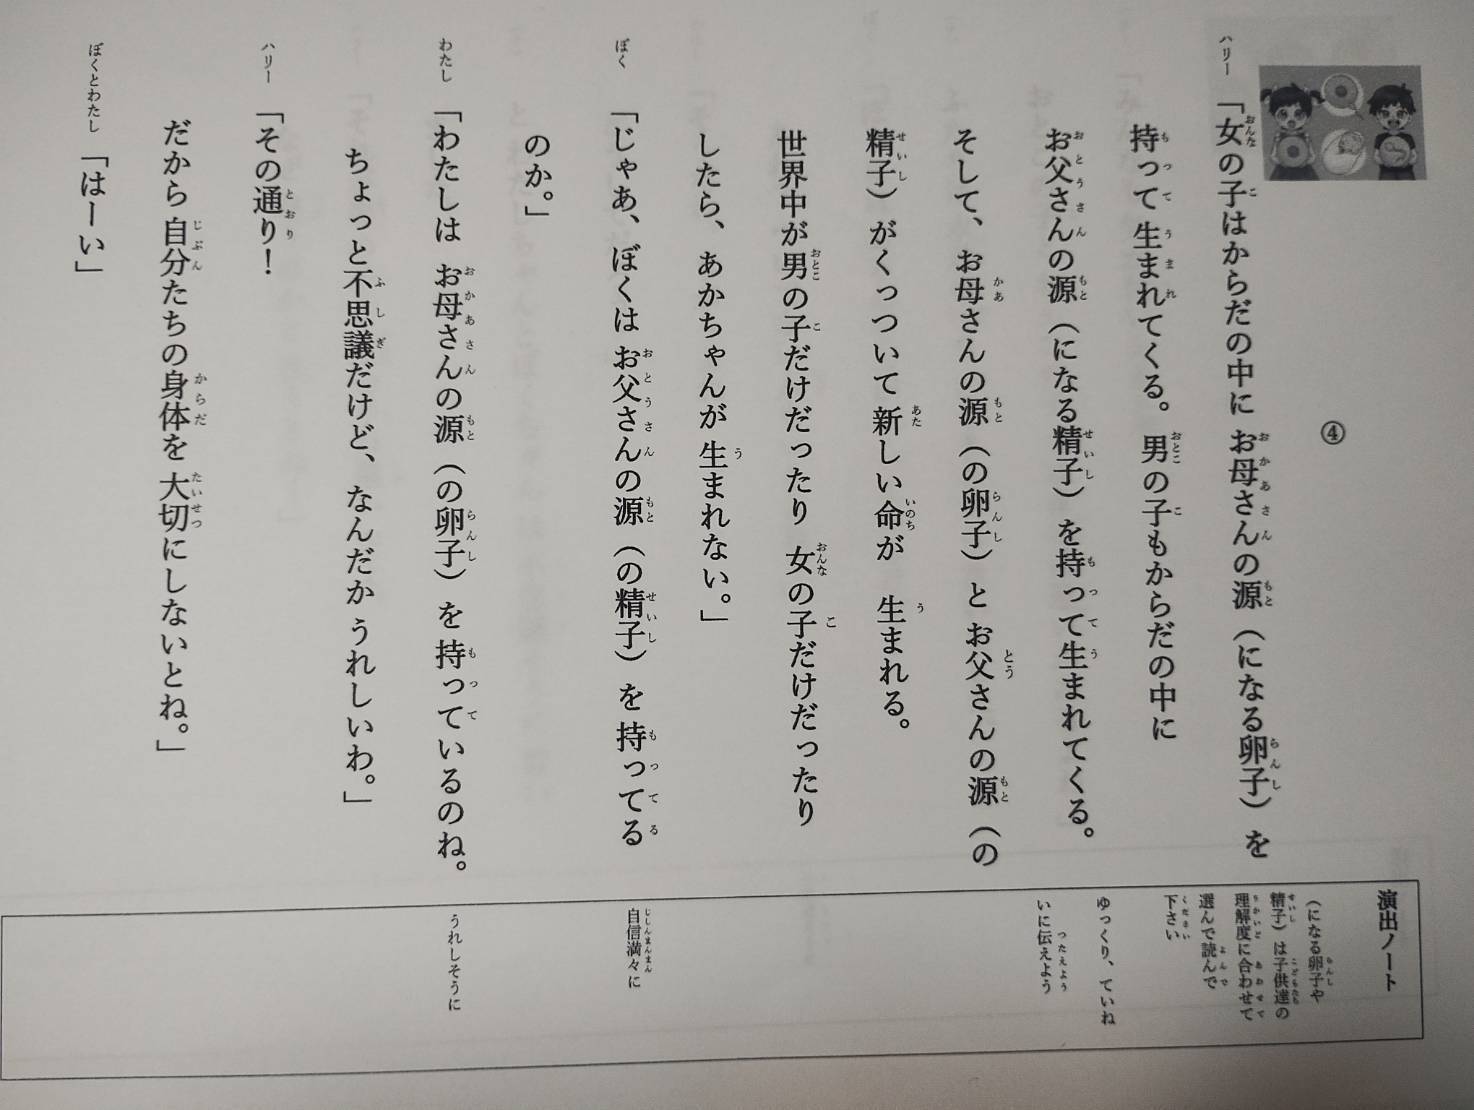 ④
ハリー 「女の子はからだの中に お母さんの源（になる卵子）を
持って 生まれてくる。男の子もからだの中に
お父さんの源（になる精子）を持って生まれてくる。
そして、お母さんの源（の卵子）と お父さんの源（の
精子）がくっついて 新しい命が 生まれる。
世界中が男の子だけだったり 女の子だけだったり
したら、あかちゃんが 生まれない。」
ぼく 「じゃあ、ぼくは お父さんの源（の精子）を 持ってる
のか。」
わたし 「わたしは お母さんの源（の卵子）を 持っているのね。
ちょっと不思議だけど、なんだか うれしいわ。」
ハリー 「その通り！
だから 自分たちの身体を 大切にしないとね。」
ぼくとわたし 「はーい」
演出ノート
（になる卵子や
精子）は子供達の
理解度に合わせて
選んで読んで
下さい
ゆっくり、ていね
いに伝えよう
自信満々に
うれしそうに